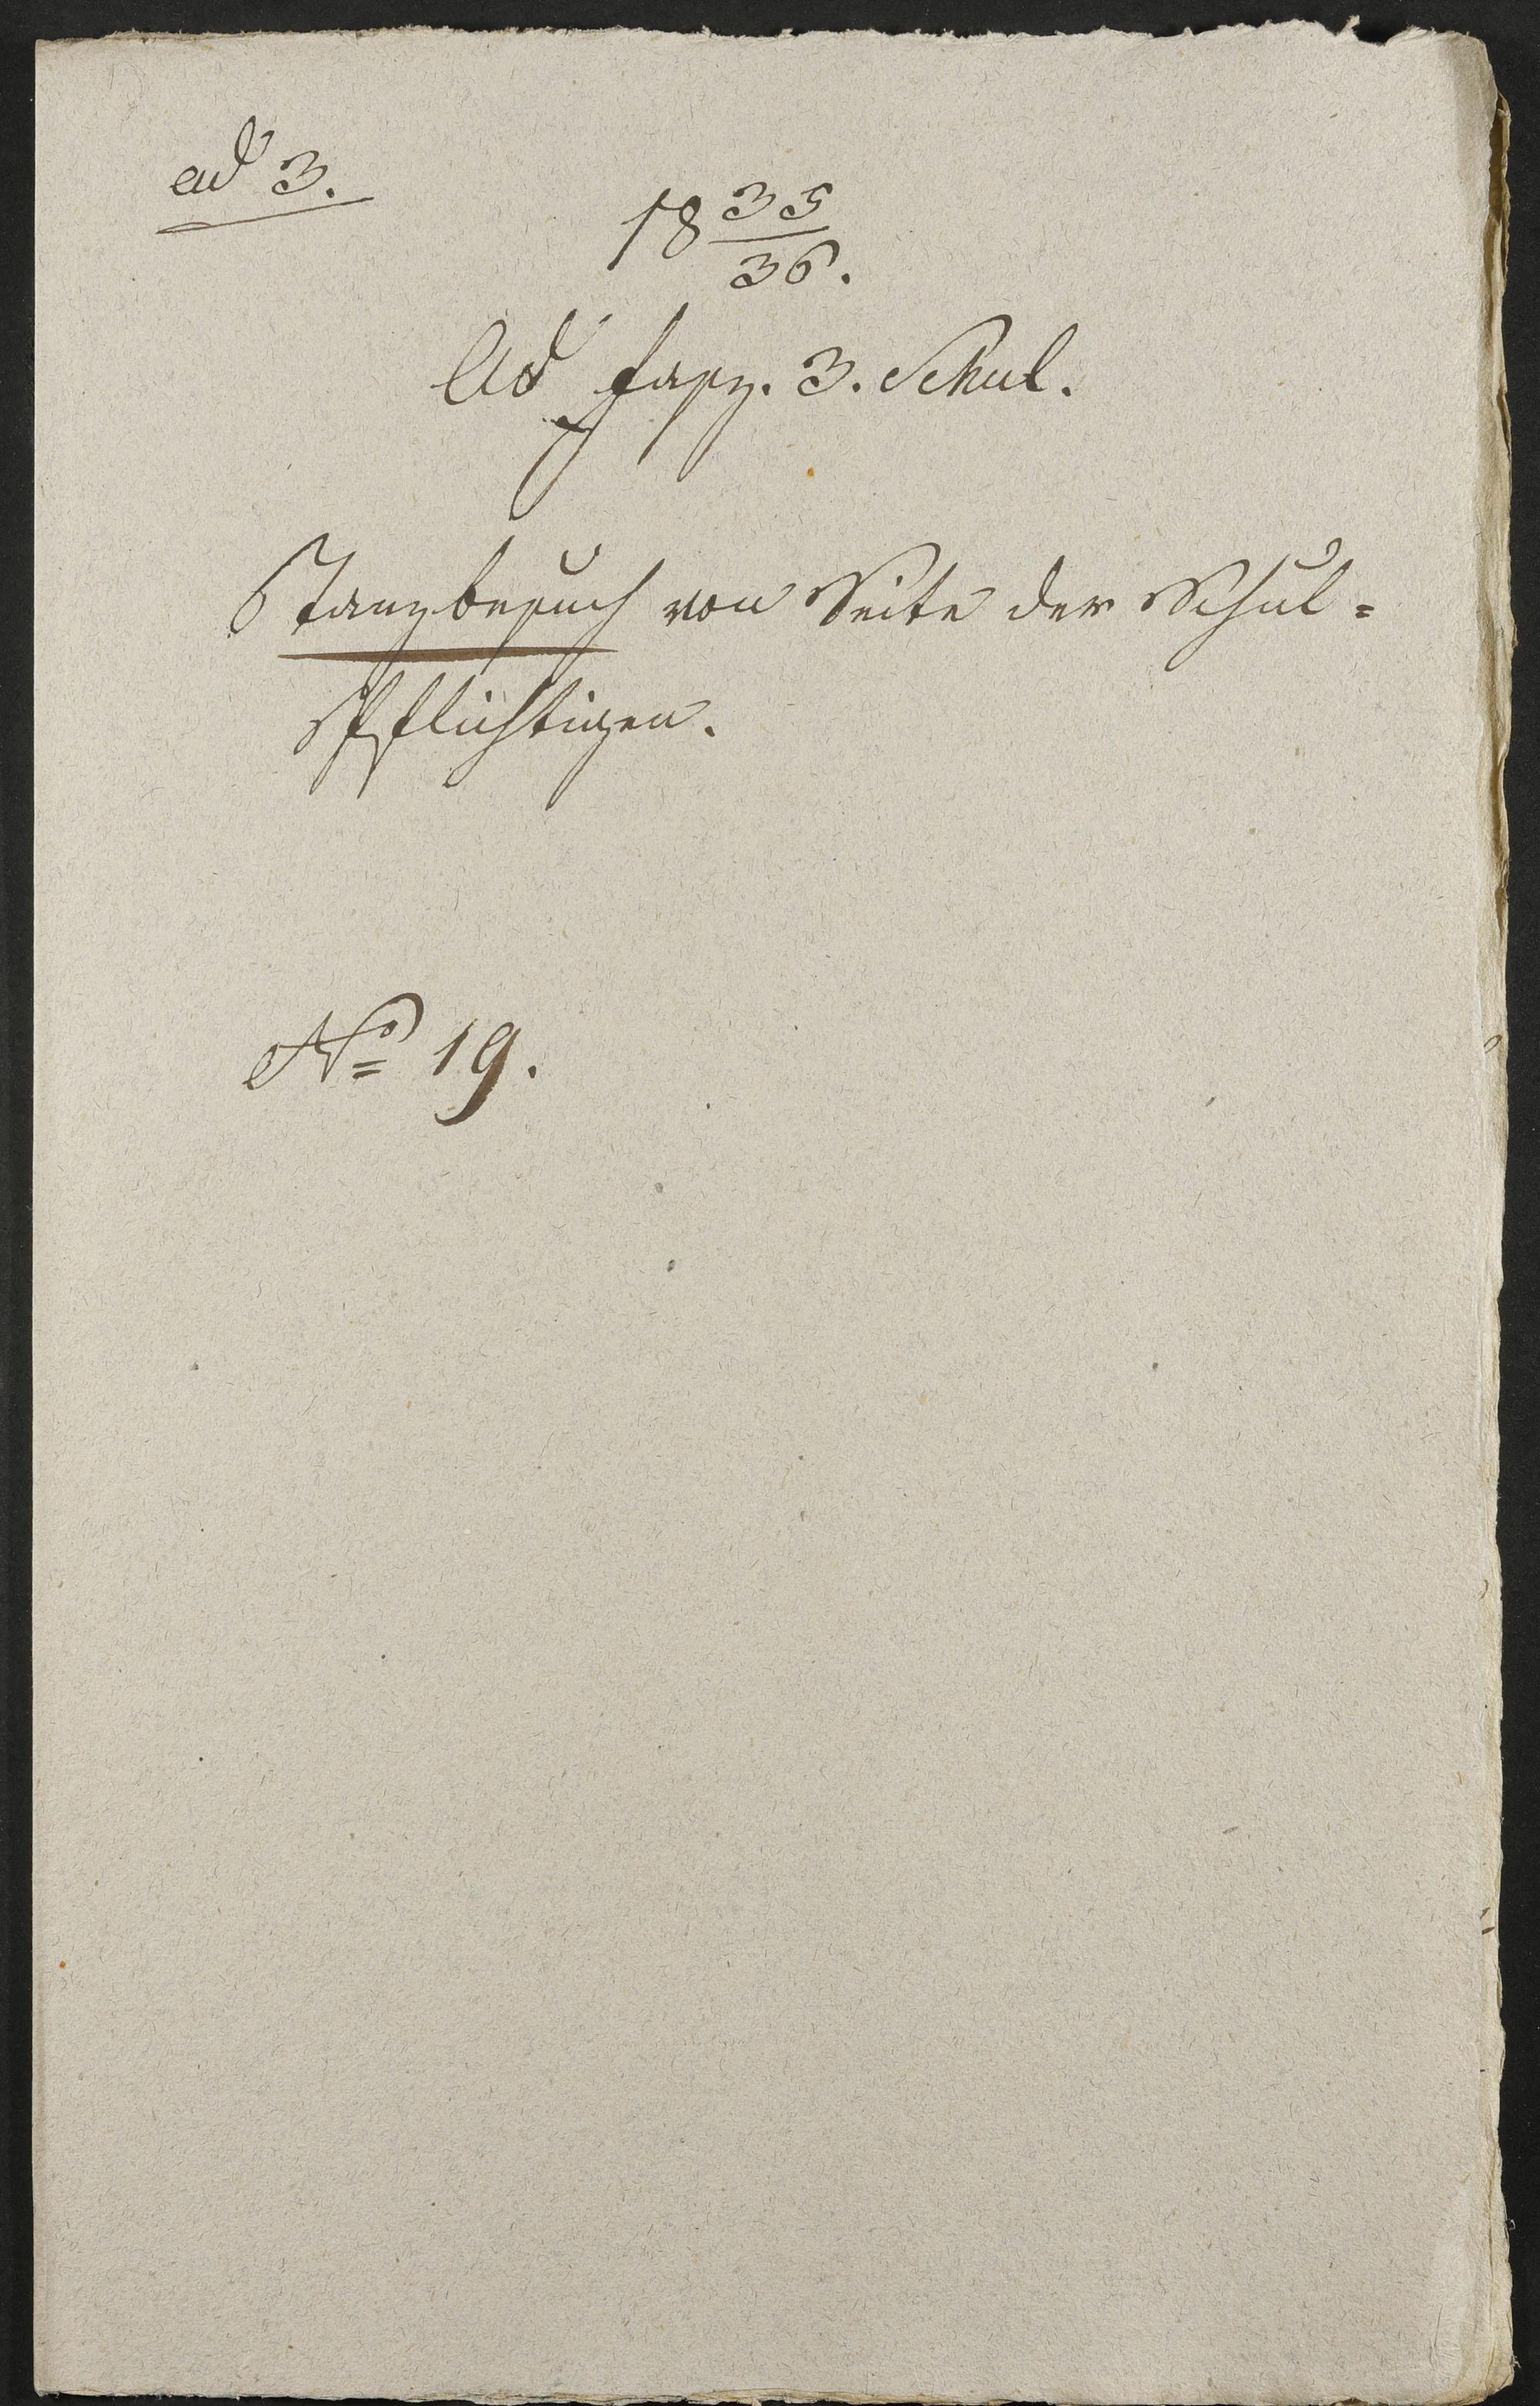 ad 3.
18 35/36.
Ad fasz. 3. Schul.
Tanzbesuch von Seite der Schul=
pflichtigen.
No 19.